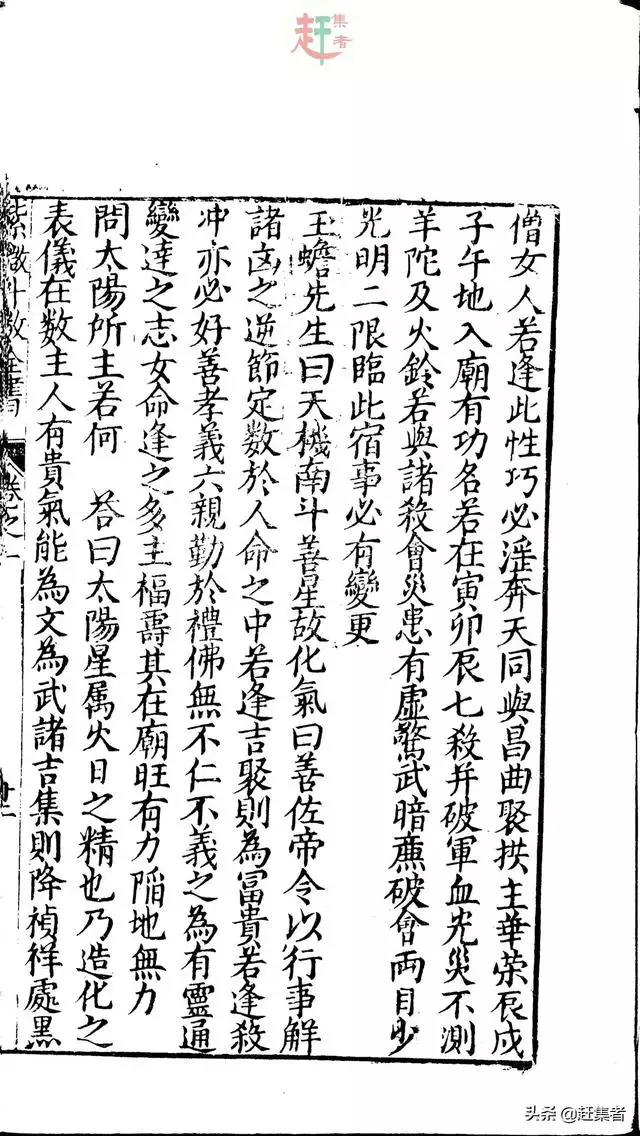 赶集者
僧女人若逢此性巧必淫奔天同與昌曲聚拱主華荣辰戍
子午地入廟有功名若在寅卯辰七殺并破軍血光災不測
羊陀及火鈴若與諸殺會災患有虛驚武暗廉破會両目少
光明二限臨此宿事必有變更
玉蟾先生曰天機南斗善星故化氣曰善佐帝令以行事解
諸凶之逆節定数於人命之中若逢吉聚則為冨貴若逢殺
冲亦必好善孝義六親勤於禮佛無不仁不義之為有靈通
變達之志女命逢之多主福壽其在廟旺有力陷地無力
問太陽所主若何 荅曰太陽星属火日之精也乃造化之
表儀在数主人有貴氣能為文為武諸吉集則降禎祥處黑
紫微斗数全書 卷之一
头条 @赶集者